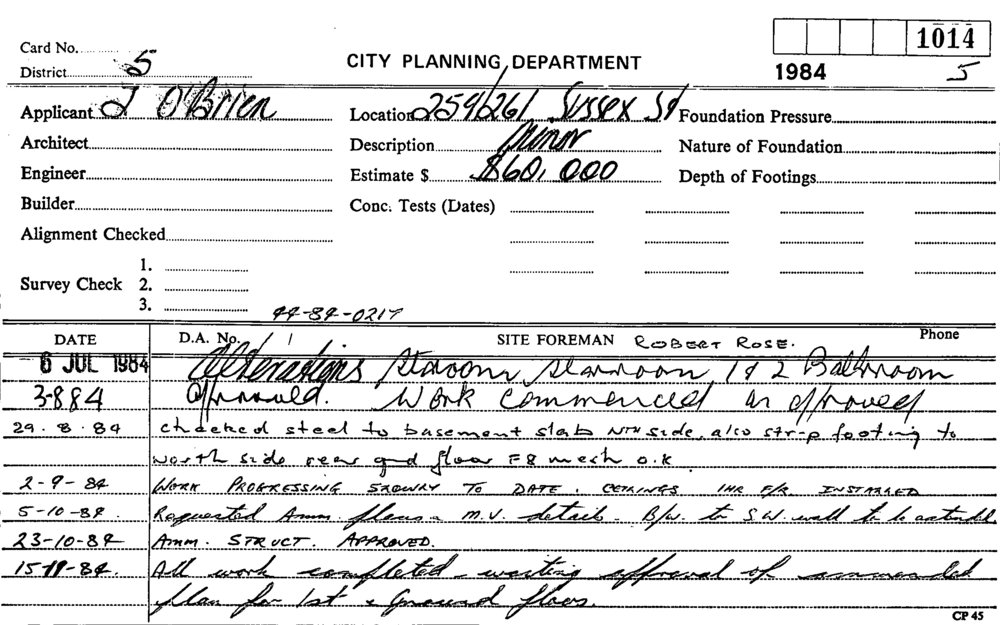 Card No.
District 5
CITY PLANNING DEPARTMENT
1014
1984 5
Applicant J O'Brien
Location 259/261 Sussex St
Foundation Pressure
Architect
Description Minor
Nature of Foundation
Engineer
Estimate $ $60,000
Depth of Footings
Builder
Conc. Tests (Dates)
Alignment Checked
Survey Check
1.
2.
3.
44-84-0217
DATE
D.A. No.
SITE FOREMAN ROBERT ROSE.
Phone
6 JUL 1984 Alterations 1 & 2 Ballroom
3-8 84 Approved. Work commenced as approved
29.8.84 checked steel to basement slab NTH side, also strip footing to
north side rear gnd floor F8 mesh o.k
2-9-84 WORK PROGRESSING SLOWLY TO DATE. CEILINGS 1HR F/R INSTALLED
5-10-84. Requested Amm. plans - M.V. details. B/W. to S.W. wall to be extended
23-10-84 AMM. STRUCT. APPROVED.
15-11-84. All work completed - waiting approval of ammended
plan for 1st & Ground floors.
CP 45